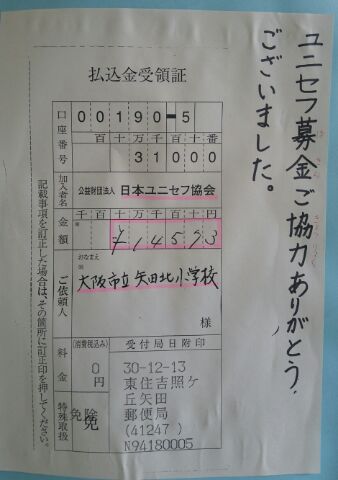 ユニセフ募金ご協力ありがとう
ございました。
払込金受領証
口座番号
00190-5
百十万千百十番
31000
加入者名
公益財団法人 日本ユニセフ協会
金額
千百十万千百十円
¥14593
ご依頼人
おなまえ
大阪市立矢田北小学校
様
料金
(消費税込み)
0
円
特殊取扱
免除
免
受付局日附印
30-12-13
東住吉照ケ
丘矢田
郵便局
(41247)
N94180005
記載事項を訂正した場合は、その箇所に訂正印を押してください。